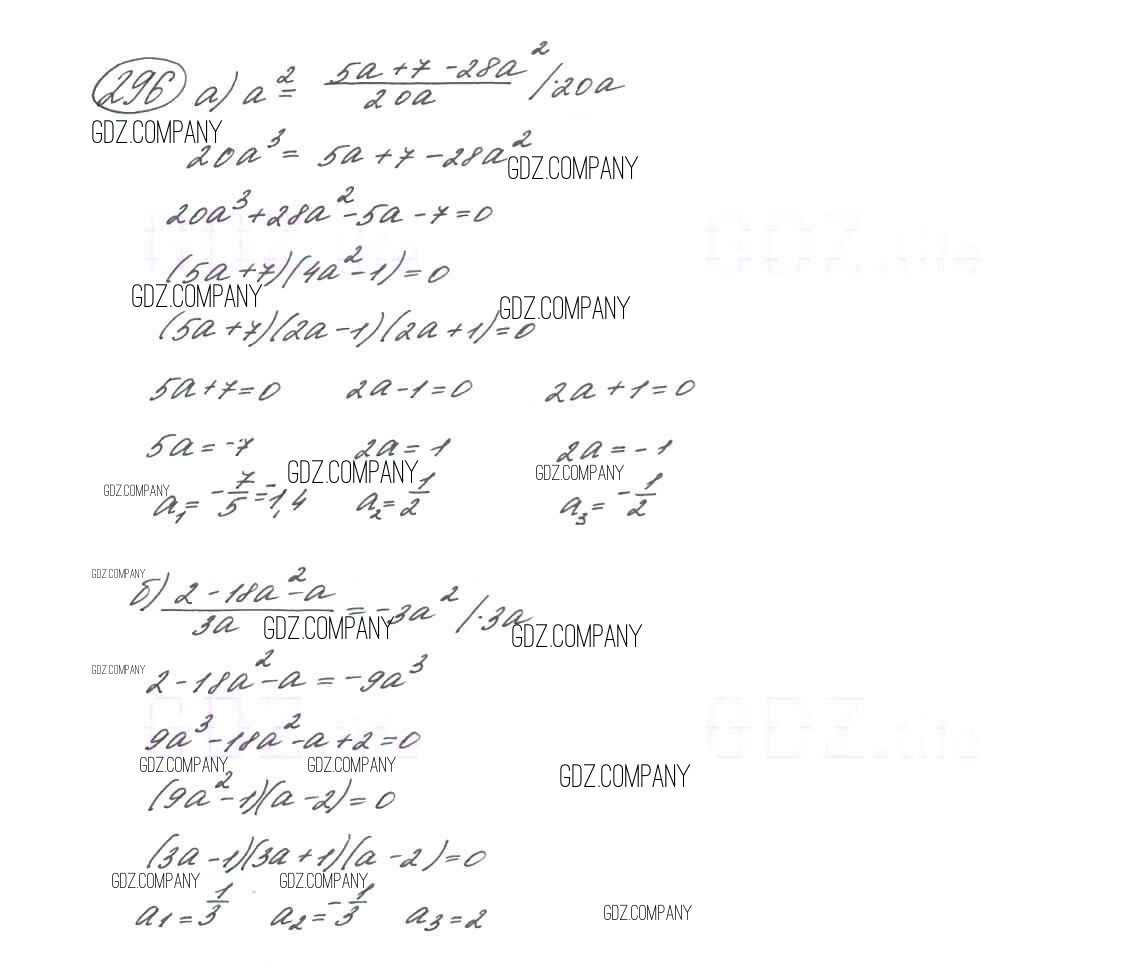 296 а) a² = (5a + 7 - 28a²)/(20a) /·20a
GDZ.COMPANY
20a³ = 5a + 7 - 28a²
GDZ.COMPANY
20a³ + 28a² - 5a - 7 = 0
GDZ.life GDZ.life
(5a + 7)(4a² - 1) = 0
GDZ.COMPANY GDZ.COMPANY
(5a + 7)(2a - 1)(2a + 1) = 0
5a + 7 = 0 2a - 1 = 0 2a + 1 = 0
5a = -7 2a = 1 2a = -1
GDZ.COMPANY GDZ.COMPANY GDZ.COMPANY
a₁ = -7/5 = -1,4 a₂ = 1/2 a₃ = -1/2
GDZ.COMPANY
б) (2 - 18a² - a)/(3a) = -3a² /·3a
GDZ.COMPANY GDZ.COMPANY
GDZ.COMPANY
2 - 18a² - a = -9a³
9a³ - 18a² - a + 2 = 0
GDZ.life GDZ.life
GDZ.COMPANY GDZ.COMPANY GDZ.COMPANY
(9a² - 1)(a - 2) = 0
(3a - 1)(3a + 1)(a - 2) = 0
GDZ.COMPANY GDZ.COMPANY
a₁ = 1/3 a₂ = -1/3 a₃ = 2
GDZ.COMPANY